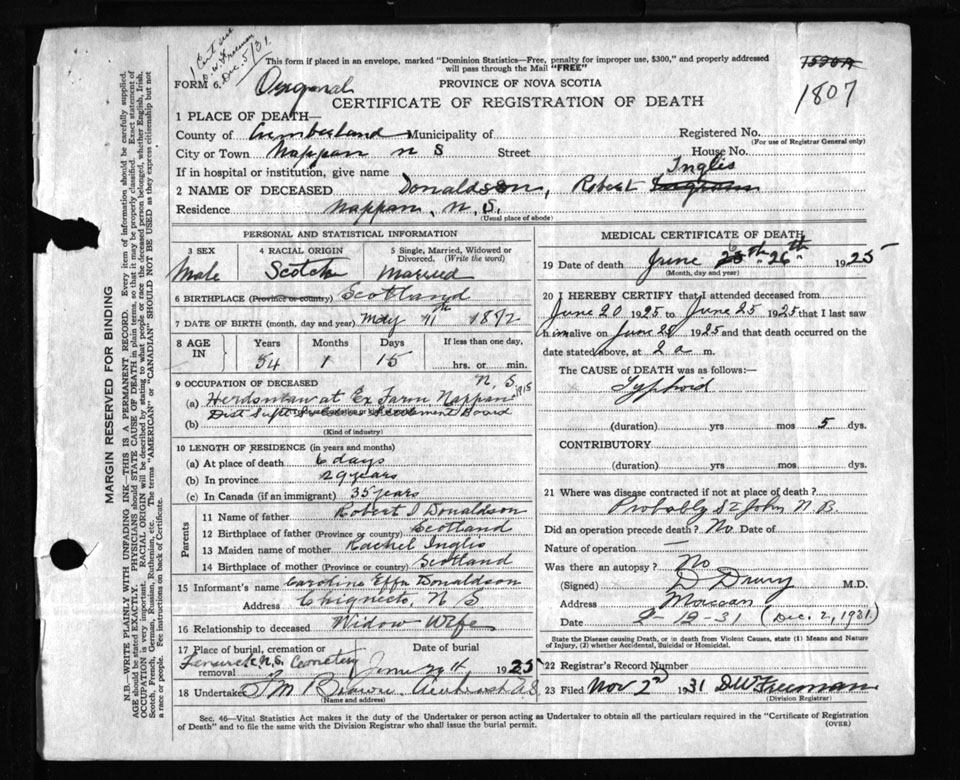 1 Cert
Dec. 5/31
This form if placed in an envelope, marked "Dominion Statistics—Free, penalty for improper use, $300," and properly addressed
will pass through the Mail "FREE"
1807
FORM 6.
PROVINCE OF NOVA SCOTIA
CERTIFICATE OF REGISTRATION OF DEATH
1 PLACE OF DEATH—
County of Cumberland Municipality of
Registered No.
(For use of Registrar General only)
City or Town Nappan N S Street House No.
If in hospital or institution, give name
Inglis
2 NAME OF DECEASED Donaldson, Robert
Residence Nappan, N. S.
(Usual place of abode)
PERSONAL AND STATISTICAL INFORMATION
3 SEX
Male
4 RACIAL ORIGIN
Scotch
5 Single, Married, Widowed or
Divorced. (Write the word)
Married
6 BIRTHPLACE (Province or country) Scotland
7 DATE OF BIRTH (month, day and year) May 11th
8 AGE
IN
Years Months Days
54 1 15
If less than one day,
hrs. or min.
9 OCCUPATION OF DECEASED N. S.
(a) Herdsman at Ex Farm, Nappan 1915
Dist Supt Settlement Board
(b)
(Kind of industry)
10 LENGTH OF RESIDENCE (in years and months)
(a) At place of death 6 days
(b) In province 29 years
(c) In Canada (if an immigrant) 35 years
Parents
11 Name of father Robert Donaldson
12 Birthplace of father (Province or country) Scotland
13 Maiden name of mother Rachel Inglis
14 Birthplace of mother (Province or country) Scotland
15 Informant's name Caroline Effa Donaldson
Address Chignecto, N S
16 Relationship to deceased Widow Wife
17 Place of burial, cremation or
removal N.S. Cemetery
Date of burial
June 1925
18 Undertaker Brown Amherst N.S.
(Name and address)
MEDICAL CERTIFICATE OF DEATH
19 Date of death June 26th 1925
(Month, day and year)
20 I HEREBY CERTIFY that I attended deceased from
June 20 1925 to June 25 1925 that I last saw
him alive on June 1925 and that death occurred on the
date stated above, at 2 a m.
The CAUSE OF DEATH was as follows:—
Typhoid
(duration) yrs mos 5 dys.
CONTRIBUTORY
(duration) yrs mos dys.
21 Where was disease contracted if not at place of death?
Probably St John N. B.
Did an operation precede death? No Date of
Nature of operation —
Was there an autopsy? No
(Signed) D Drury M.D.
Address Maccan
Date 2-12-31 (Dec. 2, 1931)
State the Disease causing Death, or in death from Violent Causes, state (1) Means and Nature
of Injury, (2) whether Accidental, Suicidal or Homicidal.
22 Registrar's Record Number
23 Filed Nov 2nd 1931 D W Freeman
(Division Registrar)
Sec. 46—Vital Statistics Act makes it the duty of the Undertaker or person acting as Undertaker to obtain all the particulars required in the "Certificate of Registration
of Death" and to file the same with the Division Registrar who shall issue the burial permit.
(OVER)
MARGIN RESERVED FOR BINDING
N.B.—WRITE PLAINLY WITH UNFADING INK—THIS IS A PERMANENT RECORD. Every item of information should be carefully supplied.
AGE should be stated EXACTLY. PHYSICIANS should STATE CAUSE OF DEATH in plain terms, so that it may be properly classified. Exact statement of
OCCUPATION is very important. RACIAL ORIGIN will be described by stating to what people or race the deceased person belonged, whether English, Irish,
Scotch, French, German, Russian, Ruthenian, etc. The terms "AMERICAN" or "CANADIAN" SHOULD NOT BE USED as they express citizenship but not
a race or people. Fee instructions on back of Certificate.